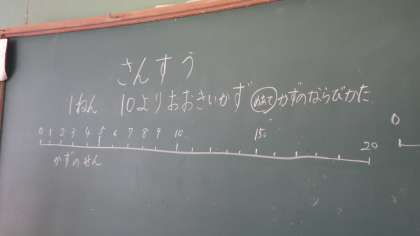 さんすう
1ねん 10よりおおきいかず めあて かずのならびかた
0 1 2 3 4 5 6 7 8 9 10 15 20
かずのせん
0